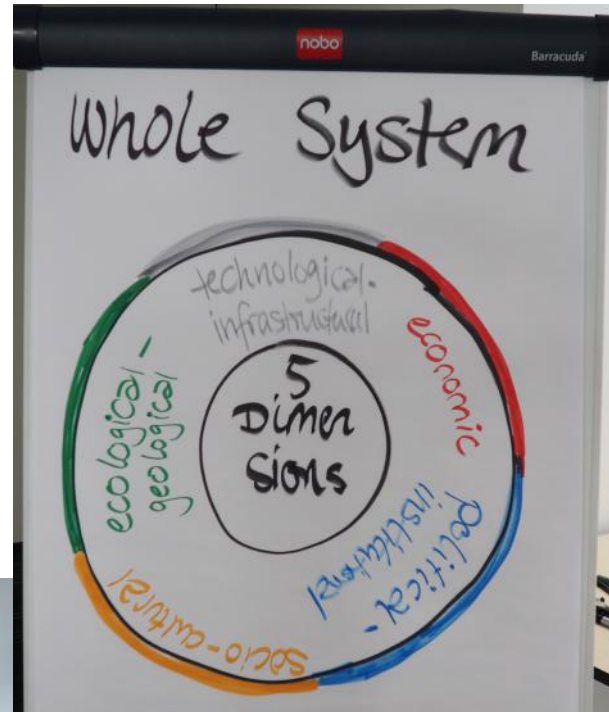 nobo
Barracuda
Whole System
technological-
infrastructural
economic
political-
institutional
socio-cultural
ecological-
geological
5
Dimen
sions